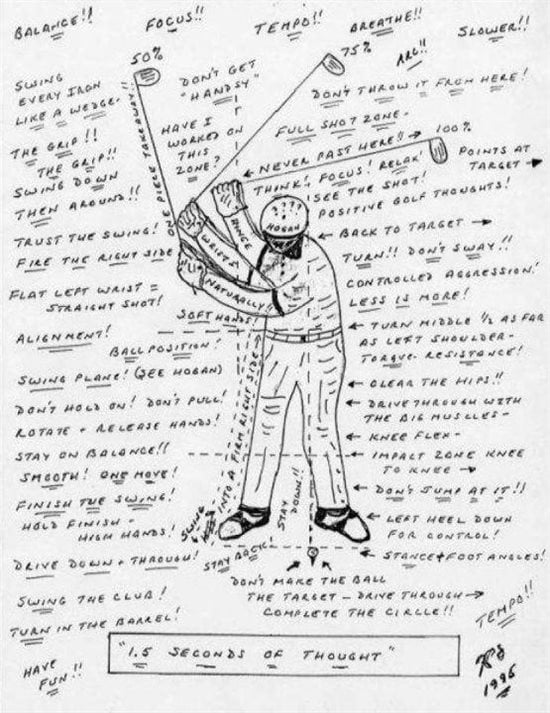 BALANCE!!
FOCUS!!
TEMPO!!
BREATHE!!
SLOWER!!
50%
75%
ARC!!
SWING
EVERY IRON
LIKE A WEDGE-
DON'T GET
"HANDSY"
DON'T THROW IT FROM HERE!
THE GRIP!!
THE GRIP!!
SWING DOWN
THEN AROUND!!
ONE PIECE TAKEAWAY!!
HAVE I
WORKED ON
THIS
ZONE?
FULL SHOT ZONE-
100%
NEVER PAST HERE!!
POINTS AT
TARGET
THINK! FOCUS! RELAX!
SEE THE SHOT!
POSITIVE GOLF THOUGHTS!
????
HOGAN
TRUST THE SWING!
FIRE THE RIGHT SIDE
WRISTS
HINGE
NATURALLY!!
BACK TO TARGET
TURN!! DON'T SWAY!!
CONTROLLED AGGRESSION!
LESS IS MORE!
FLAT LEFT WRIST =
STRAIGHT SHOT!
SOFT HANDS
TURN MIDDLE 1/2 AS FAR
AS LEFT SHOULDER-
TORQUE- RESISTANCE!
ALIGNMENT!
BALL POSITION!
SWING PLANE! (SEE HOGAN)
CLEAR THE HIPS!!
DON'T HOLD ON! DON'T PULL!
ROTATE + RELEASE HANDS!
DRIVE THROUGH WITH
THE BIG MUSCLES-
KNEE FLEX-
STAY ON BALANCE!!
SMOOTH! ONE MOVE!
IMPACT ZONE KNEE
TO KNEE
INTO A FIRM RIGHT SIDE
FINISH THE SWING!
HOLD FINISH-
HIGH HANDS!
SWING
STAY DOWN!!
DON'T JUMP AT IT!!
LEFT HEEL DOWN
FOR CONTROL!
DRIVE DOWN + THROUGH!
STAY BACK
STANCE + FOOT ANGLES!
DON'T MAKE THE BALL
THE TARGET - DRIVE THROUGH
COMPLETE THE CIRCLE!!
SWING THE CLUB!
TURN IN THE BARREL!
TEMPO!!
"1.5 SECONDS OF THOUGHT"
HAVE
FUN!!